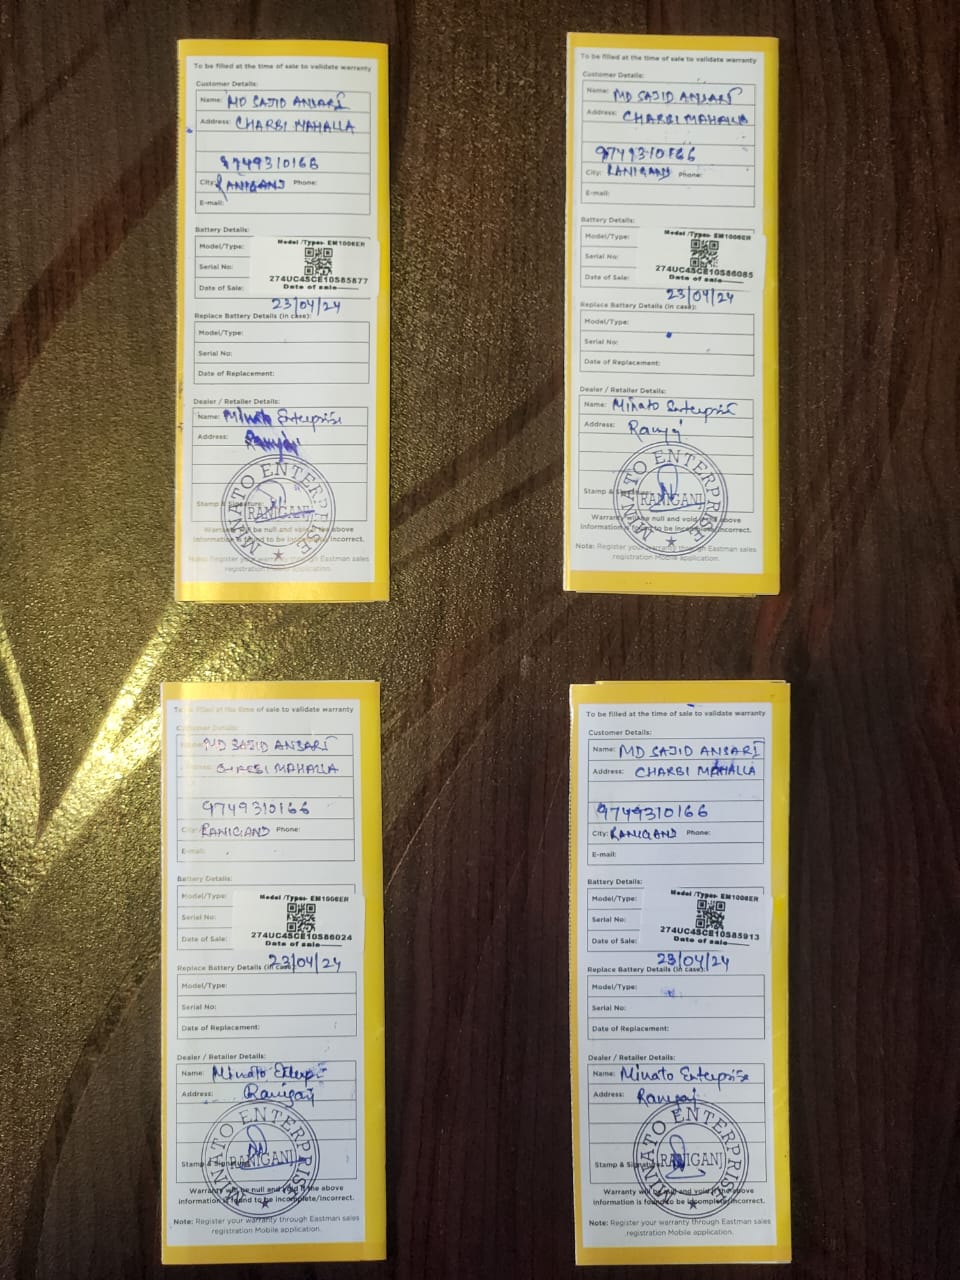 To be filled at the time of sale to validate warranty
Customer Details:
Name: MD SAJID ANSARI
Address: CHARBI MAHALLA
9749310166
City: RANIGANJ Phone:
E-mail:
Battery Details:
Model/Type: Model /Type- EM1006ER
Serial No: 274UC4SCE10S85877
Date of Sale: Date of sale
23/04/24
Replace Battery Details (in case):
Model/Type:
Serial No:
Date of Replacement:
Dealer / Retailer Details:
Name: Minato Enterprise
Address:
Stamp & Signature:
MINATO ENTERPRISE
RANIGANJ
Warranty will be null and void if the above
information is found to be incomplete/incorrect.
Note: Register your warranty through Eastman sales
registration Mobile application.
To be filled at the time of sale to validate warranty
Customer Details:
Name: MD SAJID ANSARI
Address: CHARBI MAHALLA
9749310166
City: RANIGANJ Phone:
E-mail:
Battery Details:
Model/Type: Model /Type- EM1006ER
Serial No: 274UC4SCE10S86085
Date of Sale: Date of sale
23/04/24
Replace Battery Details (in case):
Model/Type:
Serial No:
Date of Replacement:
Dealer / Retailer Details:
Name: Minato Enterprise
Address: Ranigj
Stamp & Signature:
MINATO ENTERPRISE
RANIGANJ
Warranty will be null and void if the above
information is found to be incomplete/incorrect.
Note: Register your warranty through Eastman sales
registration Mobile application.
To be filled at the time of sale to validate warranty
Customer Details:
Name: MD SAJID ANSARI
Address: MAHALLA
9749310166
City: RANIGANJ Phone:
E-mail:
Battery Details:
Model/Type: Model /Type- EM1006ER
Serial No: 274UC4SCE10S86024
Date of Sale: Date of sale
23/04/24
Replace Battery Details (in case):
Model/Type:
Serial No:
Date of Replacement:
Dealer / Retailer Details:
Name: Minato
Address: Raniganj
Stamp & Signature:
MINATO ENTERPRISE
RANIGANJ
Warranty will be null and void if the above
information is found to be incomplete/incorrect.
Note: Register your warranty through Eastman sales
registration Mobile application.
To be filled at the time of sale to validate warranty
Customer Details:
Name: MD SAJID ANSARI
Address: CHARBI MAHALLA
9749310166
City: RANIGANJ Phone:
E-mail:
Battery Details:
Model/Type: Model /Type- EM1006ER
Serial No: 274UC4SCE10S85913
Date of Sale: Date of sale
23/04/24
Replace Battery Details (in case):
Model/Type:
Serial No:
Date of Replacement:
Dealer / Retailer Details:
Name: Minato Enterprise
Address: Raniganj
Stamp & Signature:
MINATO ENTERPRISE
RANIGANJ
Warranty will be null and void if the above
information is found to be incomplete/incorrect.
Note: Register your warranty through Eastman sales
registration Mobile application.